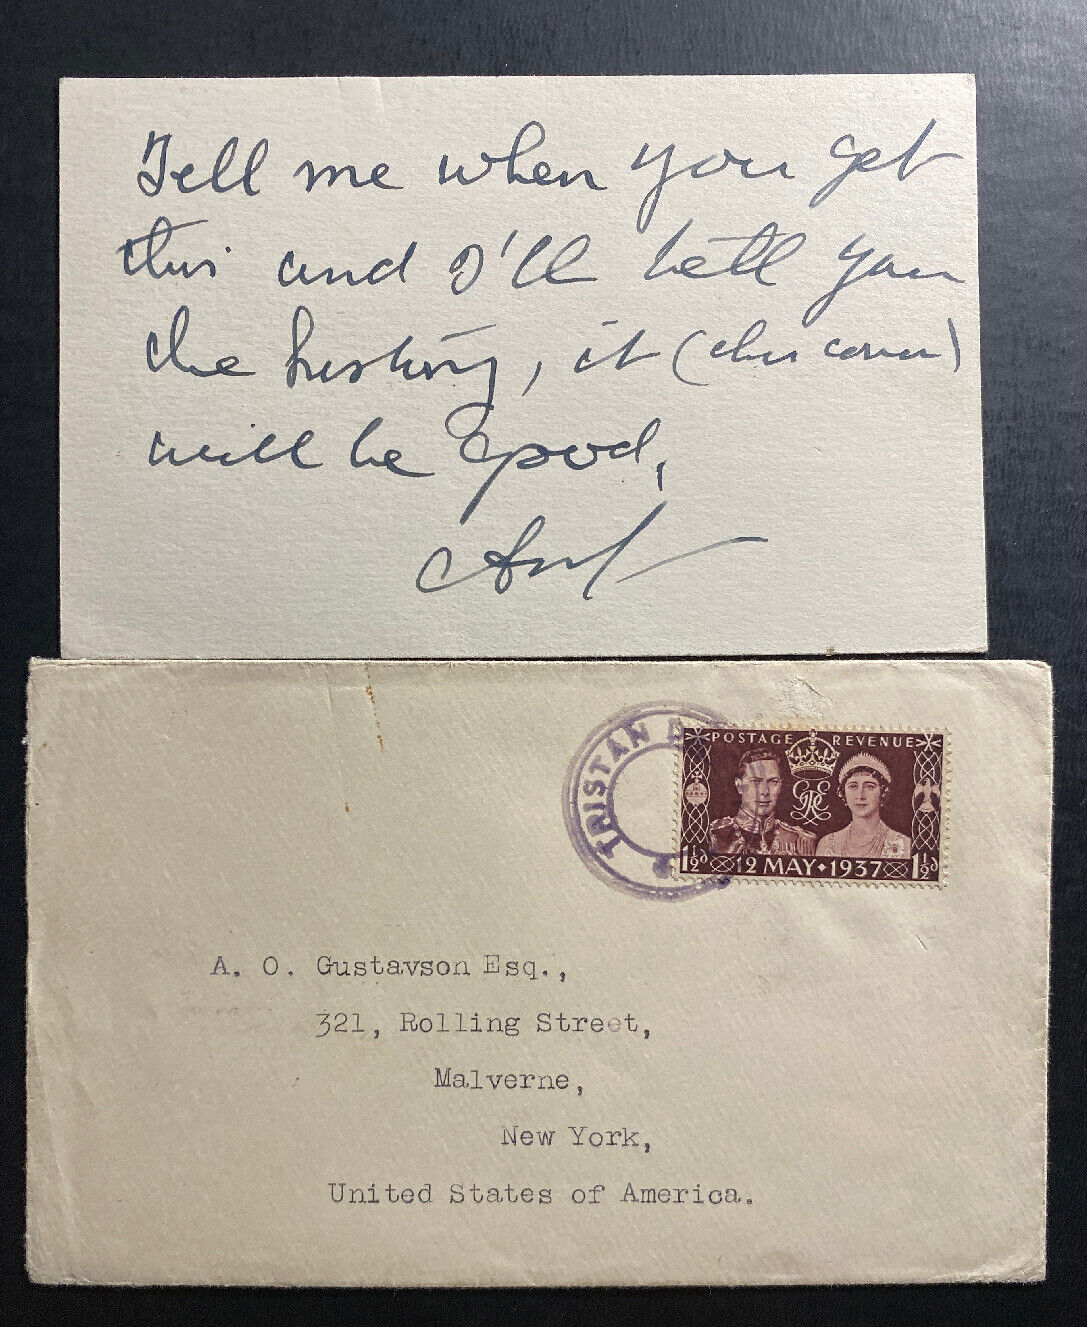 Tell me when you get
this and I'll tell you
the history, it (this cover)
will be good,
TRISTAN
POSTAGE REVENUE
1½d 12 MAY • 1937 1½d
A. O. Gustavson Esq.,
321, Rolling Street,
Malverne,
New York,
United States of America.